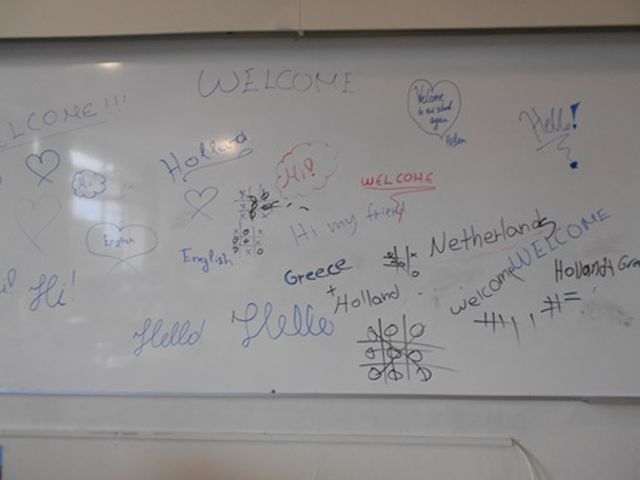 WELCOME
ELCOME!!!
Welcome
to our school
again
Helen
Hello!
Holland
Hi!
WELCOME
English
Hi my friend
English
Netherlands
WELCOME
Greece
+
Holland
welcome
Holland + Gre
Hi!
Hello!
Hello